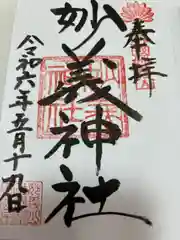 奉拝
妙義神社
令和六年五月十九日